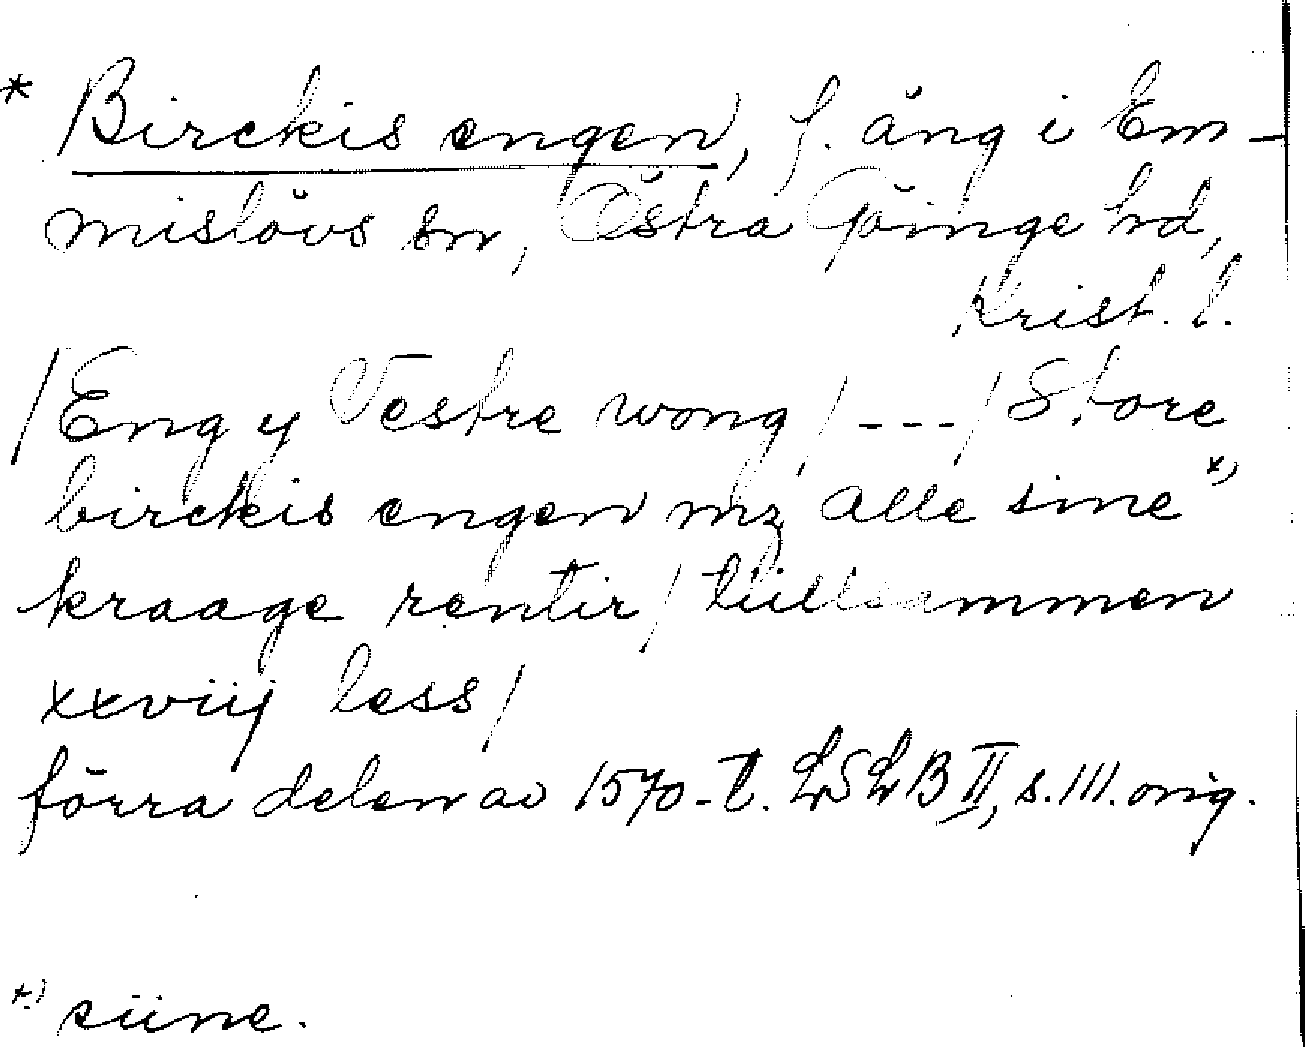 * Birckis engen, f. äng i Em-
mislövs sn, Östra Göinge hd,
Krist. l.
/Eng y Vestre wong / --- / Store
birckis engen mz alle sine *)
kraage rentir / tüllsammen
xxviij less /
förra delen av 1570-t. LSLB II, s. 111. orig.
*) siine.